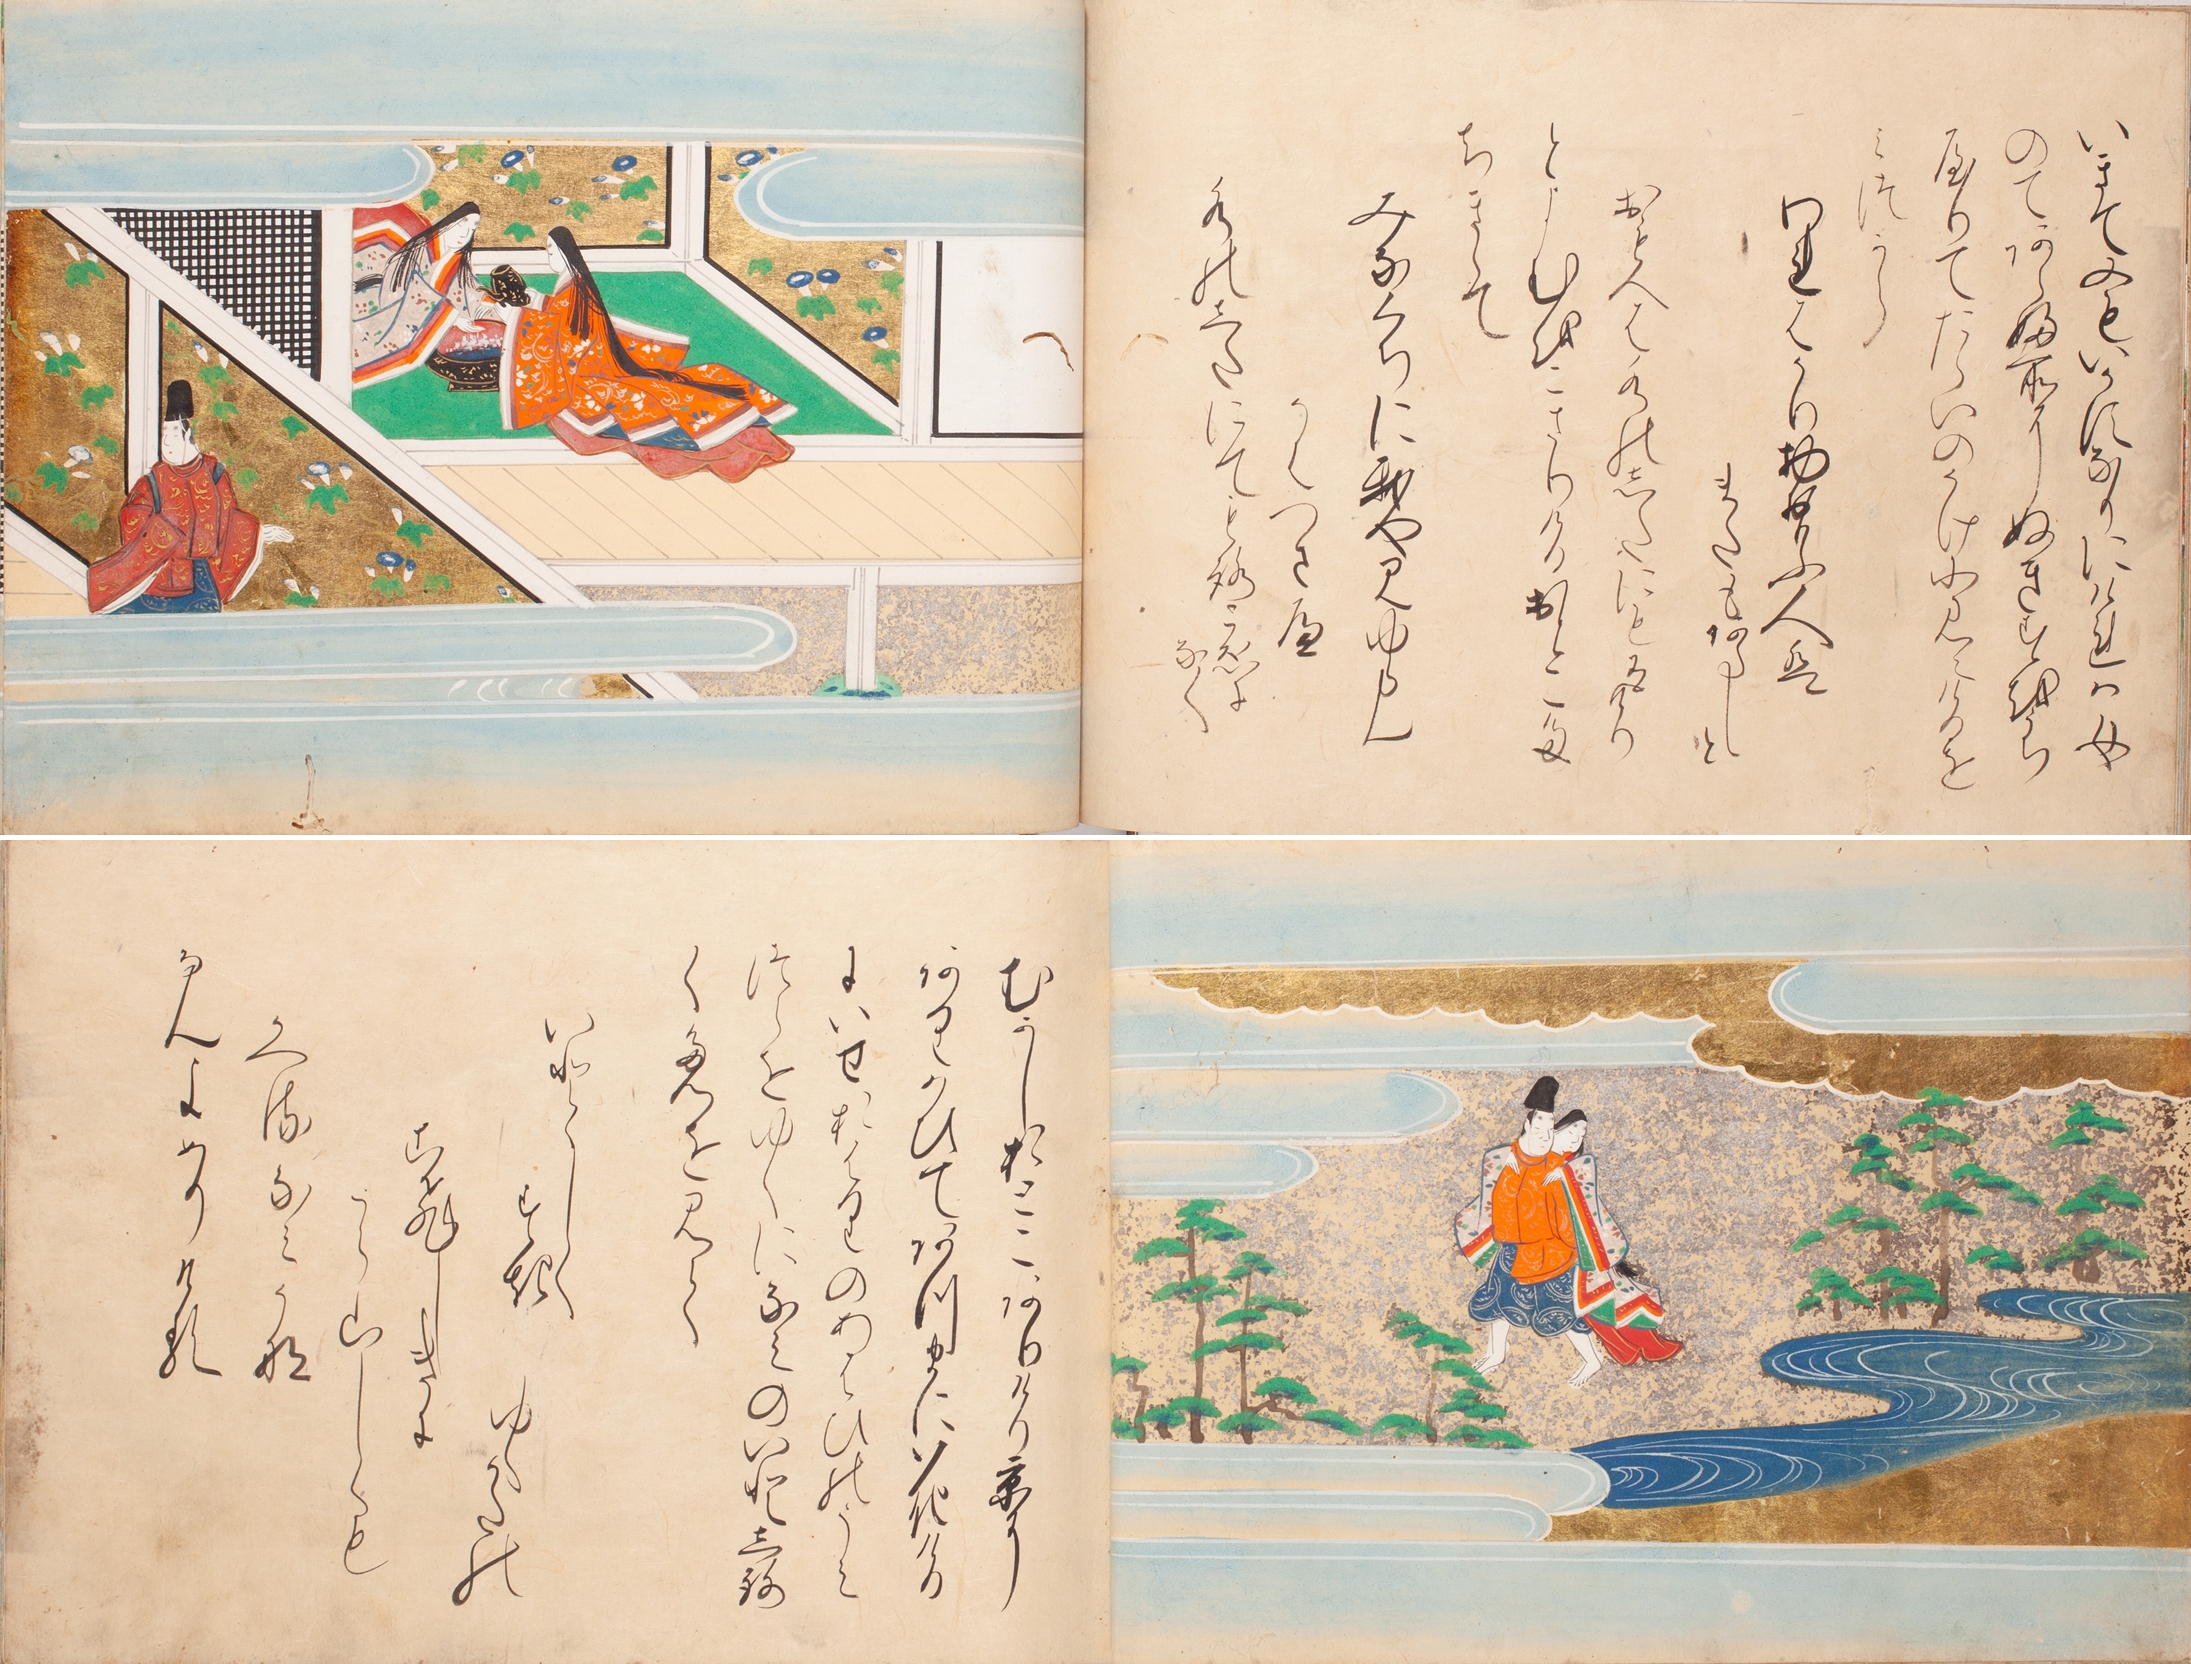 いきて又もいかすなりにけれは女
のてあらふ所にぬきすをうち
やりてたらいのかけに見えけるを
みつから
われはかり物おもふ人は
またもあらしと
おもへは水のしたにもありけり
とよむをこさりけるおとこた
ちきゝて
みなくちに我や見ゆらん
かはつさへ
水のしたにてもろこゑに
なく
むかしおとこありけり京に
ありわひてあつまにいきける
にいせおはりのあはひのうみ
つらをゆくになみのいとしろ
くたつを見て
いとゝしく
すき
ゆくかたの
こひしきに
うら山しくも
かへるなみかな
なんよめりける